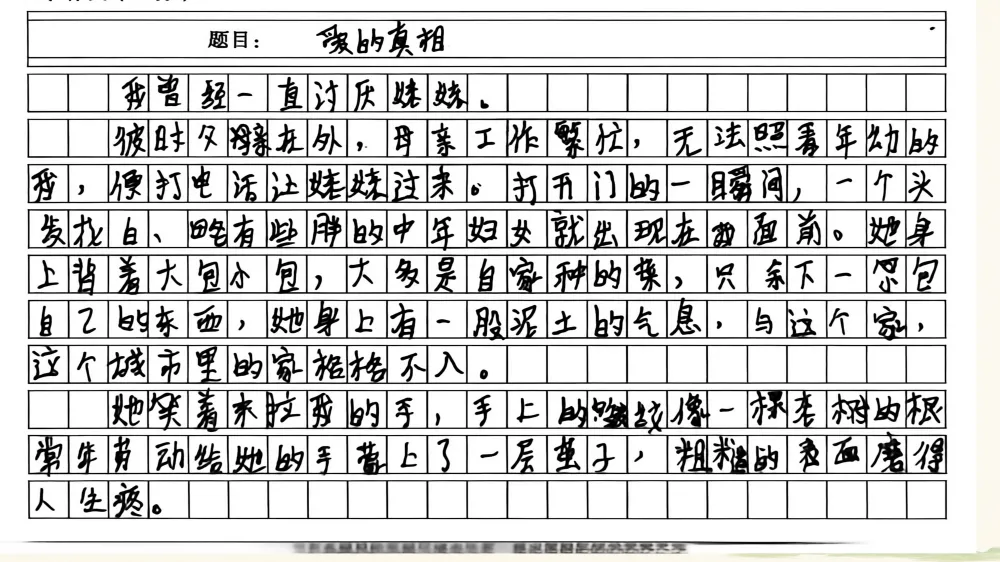 题目： 爱的真相
我曾经一直讨厌姥姥。
彼时父母亲在外，母亲工作繁忙，无法照看年幼的
我，便打电话让姥姥过来。打开门的一瞬间，一个头
发花白、略有些胖的中年妇女就出现在面前。她身
上背着大包小包，大多是自家种的菜，只余下一小包
自己的东西，她身上有一股泥土的气息，与这个家，
这个城市里的家格格不入。
她笑着来拉我的手，手上的皱纹像一棵老树的根
常年劳动给她的手蓄上了一层茧子，粗糙的表面磨得
人生疼。